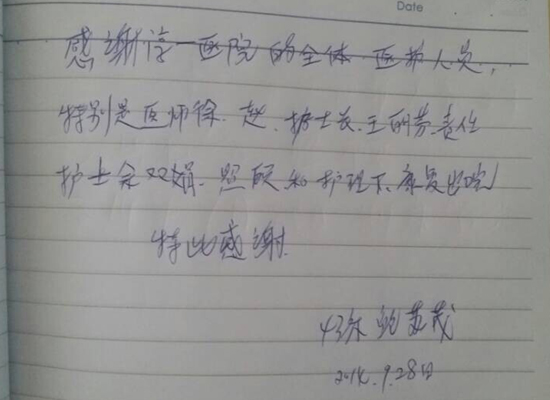 Date
感谢淳一医院的全体医护人员，
特别是医师徐.赵.护士长.王丽芳责任
护士余双娟.照顾和护理下、康复出院
特此感谢.
鲍
2014.9.28日